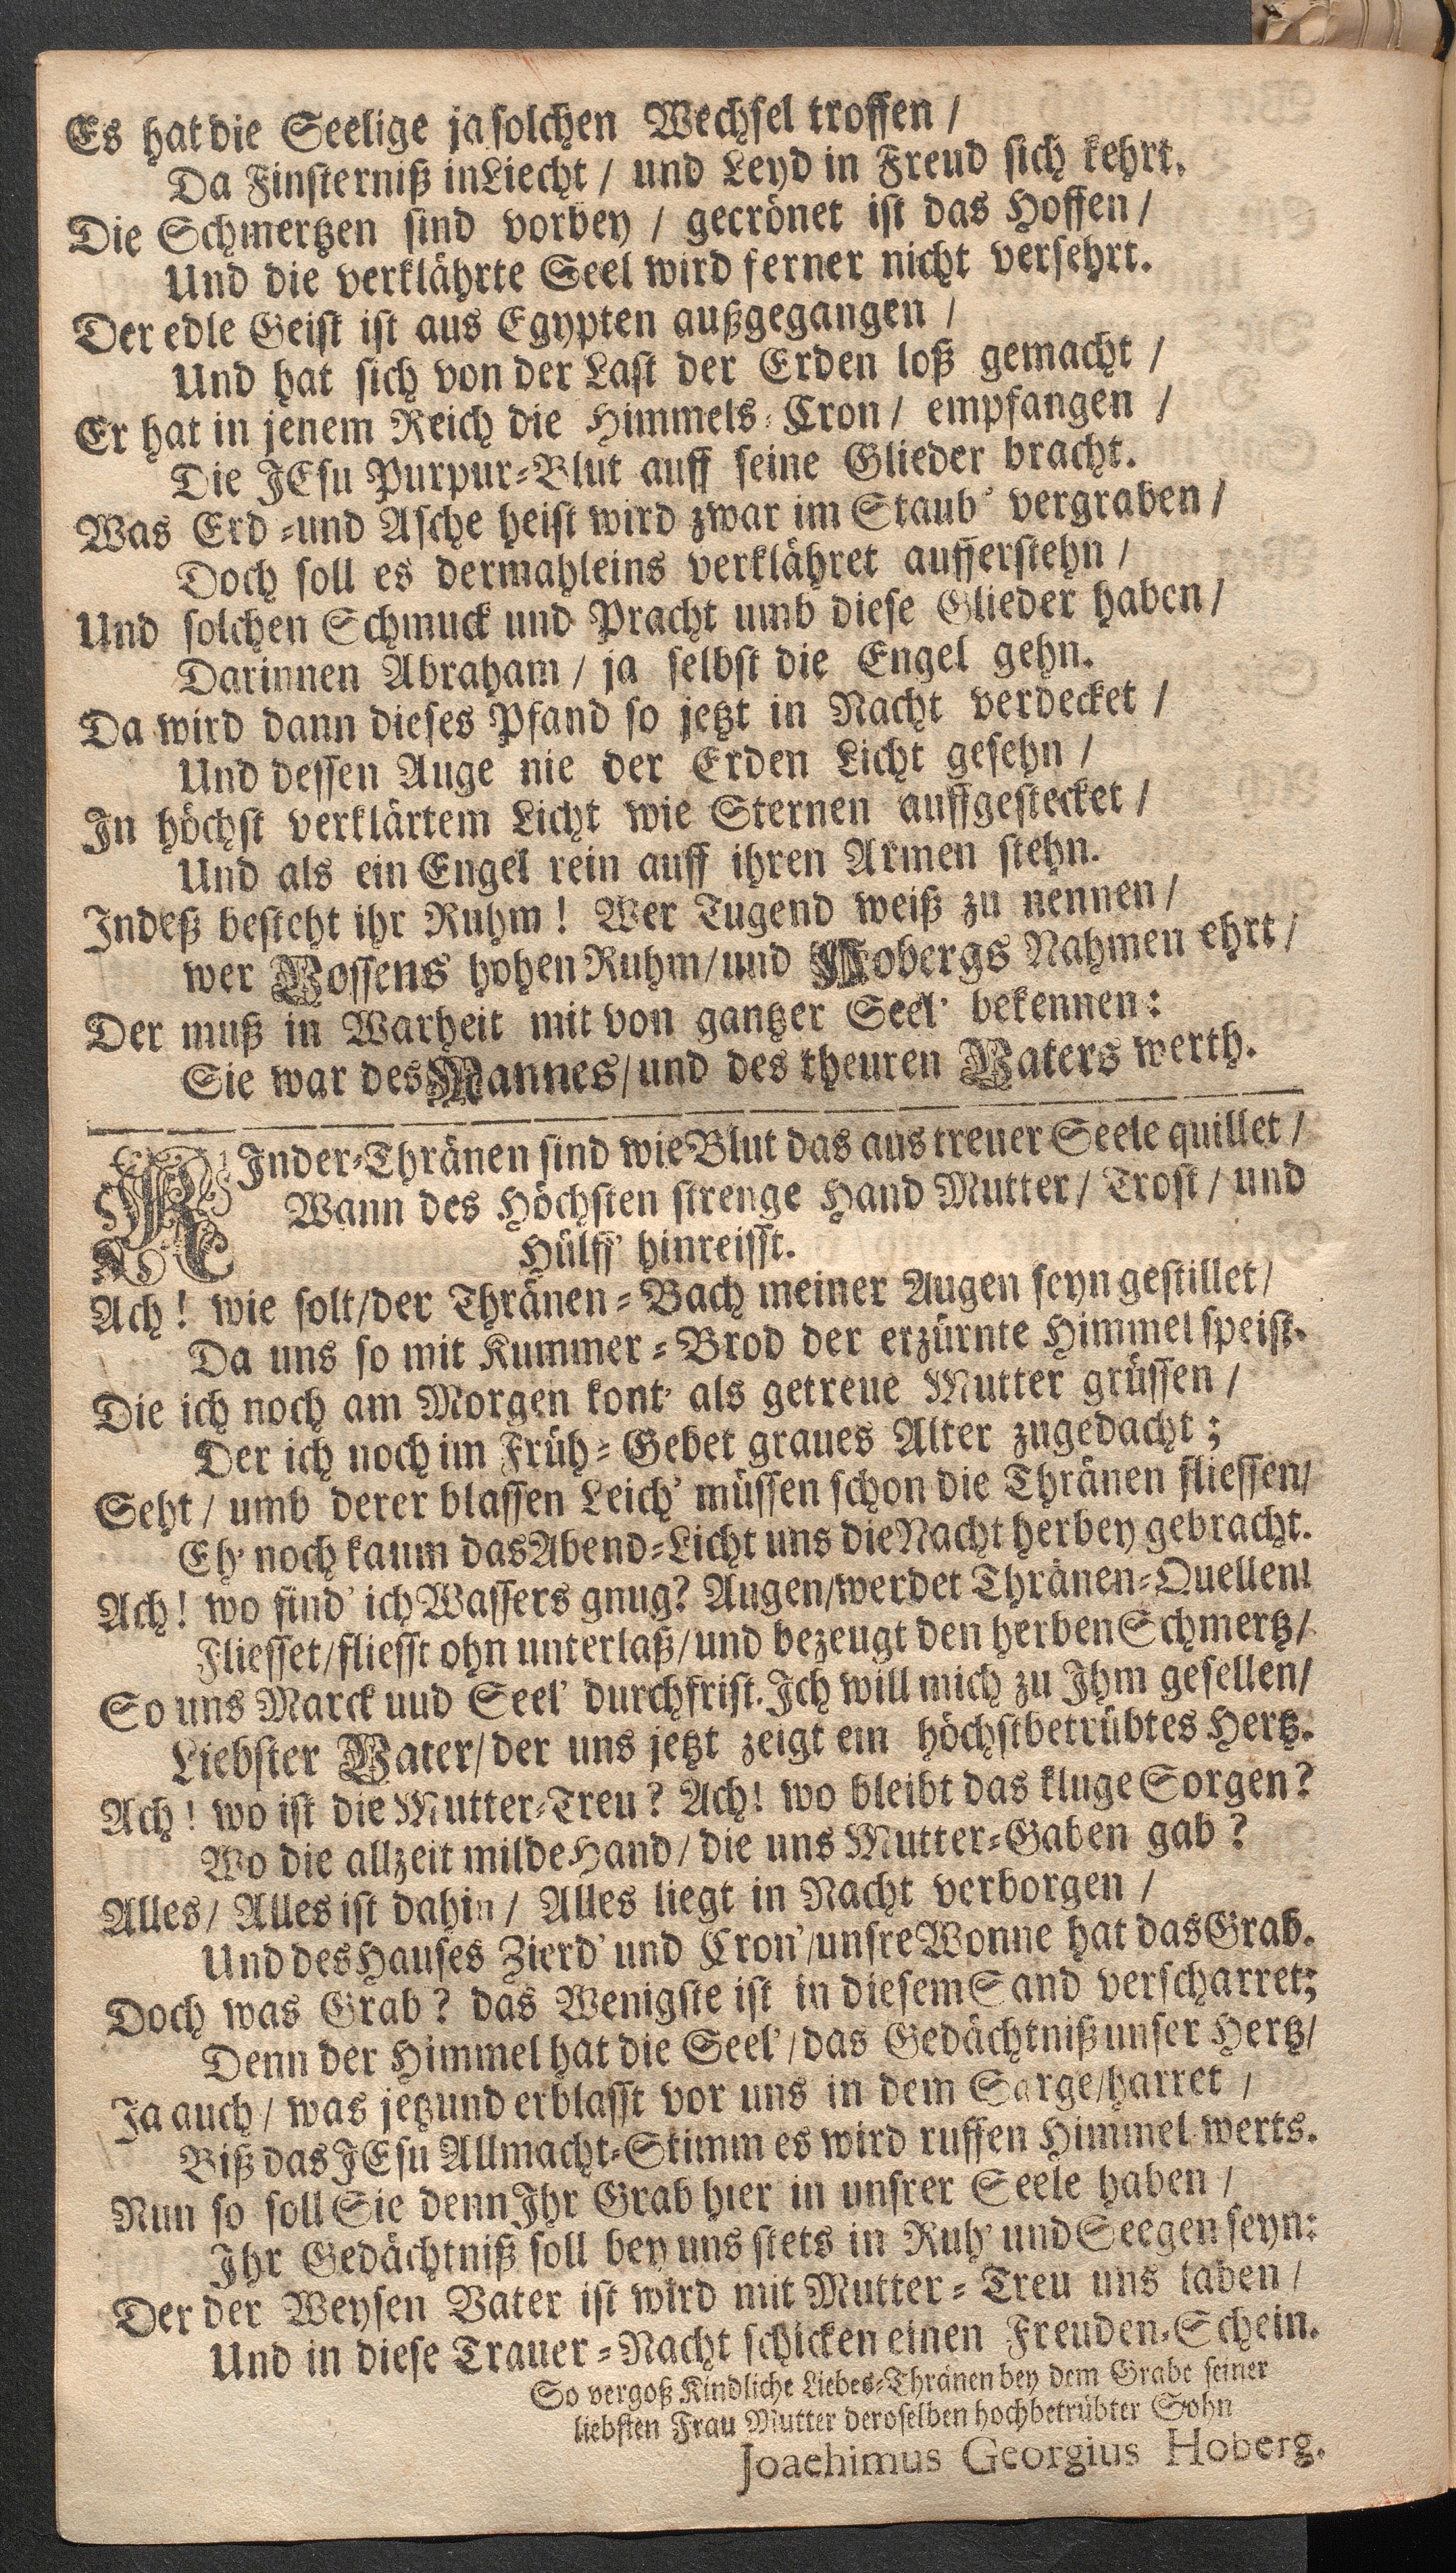 Es hat die Seelige ja solchen Wechsel troffen /
Da Finsterniß in Liecht / und Leyd in Freud sich kehrt.
Die Schmertzen sind vorbey / gecrönet ist das Hoffen /
Und die verklährte Seel wird ferner nicht versehrt.
Der edle Geist ist aus Egypten außgegangen /
Und hat sich von der Last der Erden loß gemacht /
Er hat in jenem Reich die Himmels-Cron / empfangen /
Die JEsu Purpur-Blut auff seine Glieder bracht.
Was Erd-und Asche heist wird zwar im Staub' vergraben /
Doch soll es dermahleins verklähret aufferstehn /
Und solchen Schmuck und Pracht umb diese Glieder haben /
Darinnen Abraham / ja selbst die Engel gehn.
Da wird dann dieses Pfand so jetzt in Nacht verdecket /
Und dessen Auge nie der Erden Licht gesehn /
In höchst verklärtem Licht wie Sternen auffgestecket /
Und als ein Engel rein auff ihren Armen stehn.
Indeß besteht ihr Ruhm! Wer Tugend weiß zu nennen /
wer Vossens hohen Ruhm / und Hobergs Nahmen ehrt /
Der muß in Warheit mit von gantzer Seel' bekennen:
Sie war des Mannes / und des theuren Vaters werth.
KInder-Thränen sind wie Blut das aus treuer Seele quillet /
Wann des Höchsten strenge Hand Mutter / Trost / und
Hülff' hinreisst.
Ach! wie solt / der Thränen-Bach meiner Augen seyn gestillet /
Da uns so mit Kummer-Brod der erzürnte Himmel speist.
Die ich noch am Morgen kont' als getreue Mutter grüssen /
Der ich noch im Früh-Gebet graues Alter zugedacht;
Seht / umb derer blassen Leich' müssen schon die Thränen fliessen /
Eh' noch kaum das Abend-Licht uns die Nacht herbey gebracht.
Ach! wo find' ich Wassers gnug? Augen / werdet Thränen-Quellen!
Fliesset / fliesst ohn unterlaß / und bezeugt den herben Schmertz /
So uns Marck uud Seel' durchfrist. Ich will mich zu Ihm gesellen /
Liebster Vater / der uns jetzt zeigt ein höchstbetrübtes Hertz.
Ach! wo ist die Mutter-Treu? Ach! wo bleibt das kluge Sorgen?
Wo die allzeit milde Hand / die uns Mutter-Gaben gab?
Alles / Alles ist dahin / Alles liegt in Nacht verborgen /
Und des Hauses Zierd' und Cron' / unsre Wonne hat das Grab.
Doch was Grab? das Wenigste ist in diesem Sand verscharret;
Denn der Himmel hat die Seel' / das Gedächtniß unser Hertz /
Ja auch / was jetzund erblasst vor uns in dem Sarge / harret /
Biß das JEsu Allmacht-Stimm es wird ruffen Himmel werts.
Nun so soll Sie denn Ihr Grab hier in unsrer Seele haben /
Ihr Gedächtniß soll bey uns stets in Ruh' und Seegen seyn:
Der der Weysen Vater ist wird mit Mutter-Treu uns laben /
Und in diese Trauer-Nacht schicken einen Freuden-Schein.
So vergoß Kindliche Liebes-Thränen bey dem Grabe seiner
liebsten Frau Mutter deroselben hochbetrübter Sohn
Joachimus Georgius Hoberg.